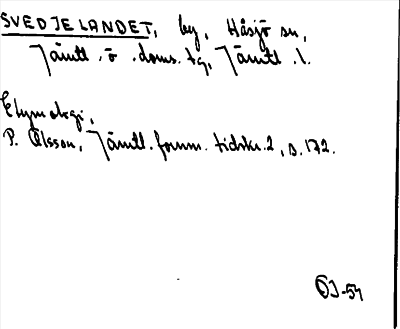 SVEDJELANDET, by, Håsjö sn,
Jämtl. ö. doms. tg, Jämtl. l.
Etymologi,
P. Olsson, Jämtl. fornm. tidskr. 2, s. 172.
OJ-54